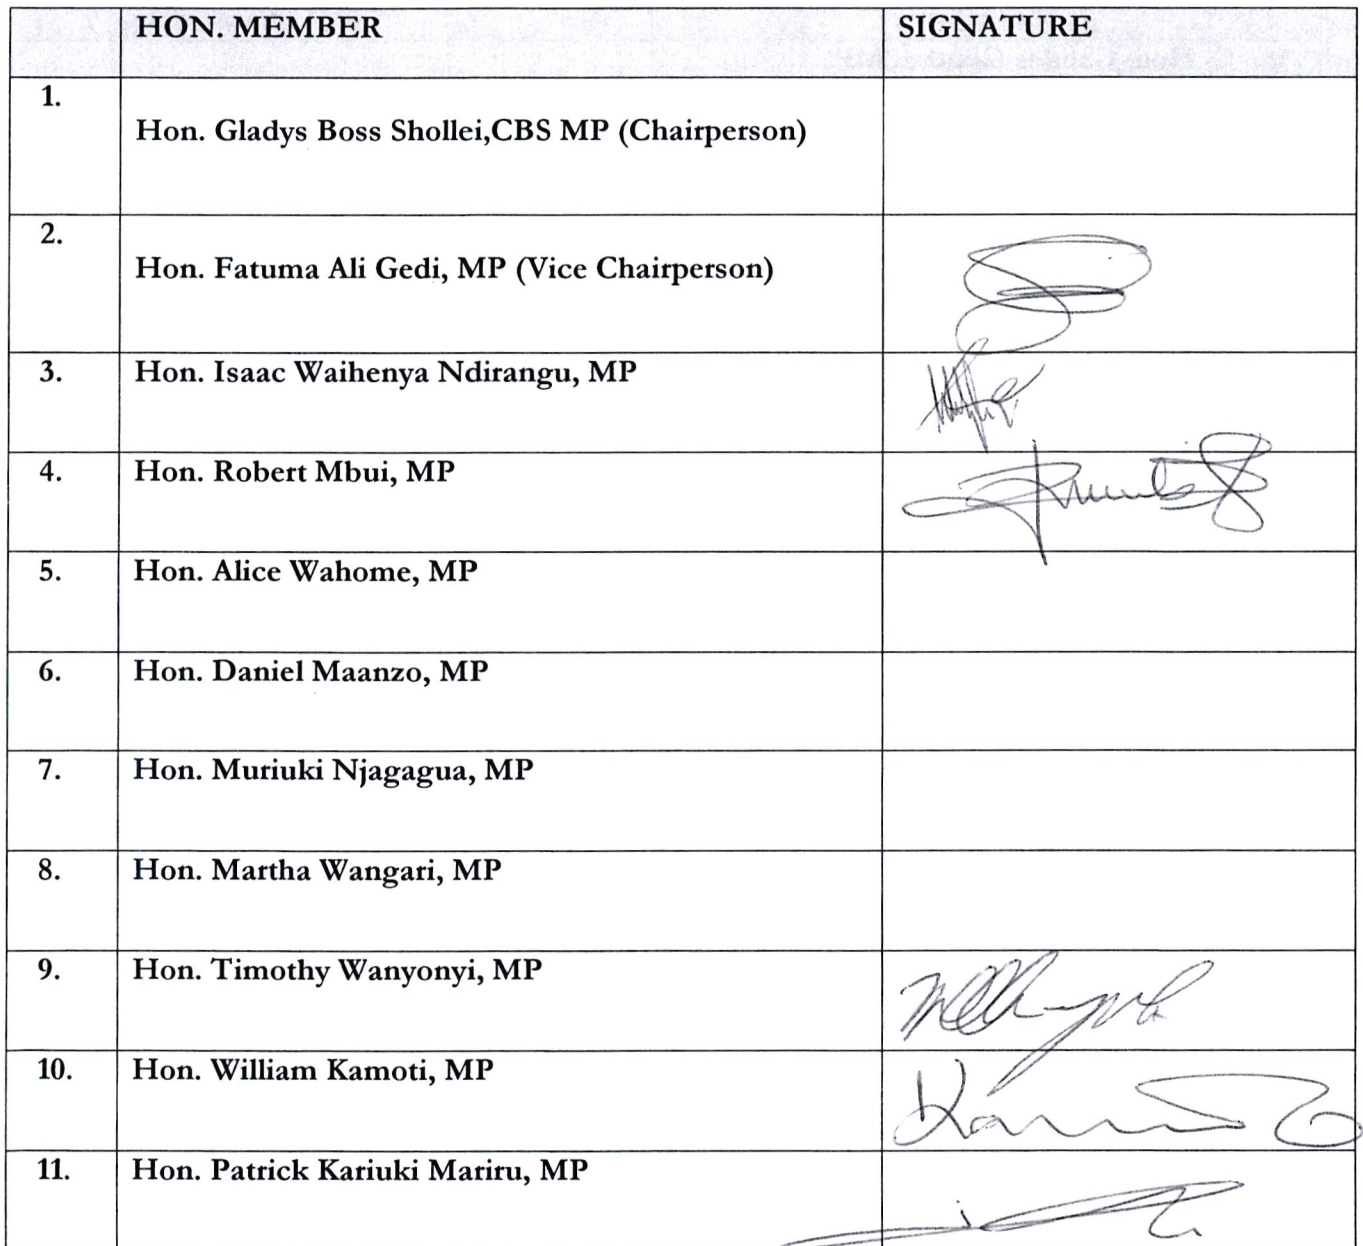 HON. MEMBER SIGNATURE
1.
Hon. Gladys Boss Shollei,CBS MP (Chairperson)
2.
Hon. Fatuma Ali Gedi, MP (Vice Chairperson)
3. Hon. Isaac Waihenya Ndirangu, MP
4. Hon. Robert Mbui, MP
5. Hon. Alice Wahome, MP
6. Hon. Daniel Maanzo, MP
7. Hon. Muriuki Njagagua, MP
8. Hon. Martha Wangari, MP
9. Hon. Timothy Wanyonyi, MP
10. Hon. William Kamoti, MP
11. Hon. Patrick Kariuki Mariru, MP